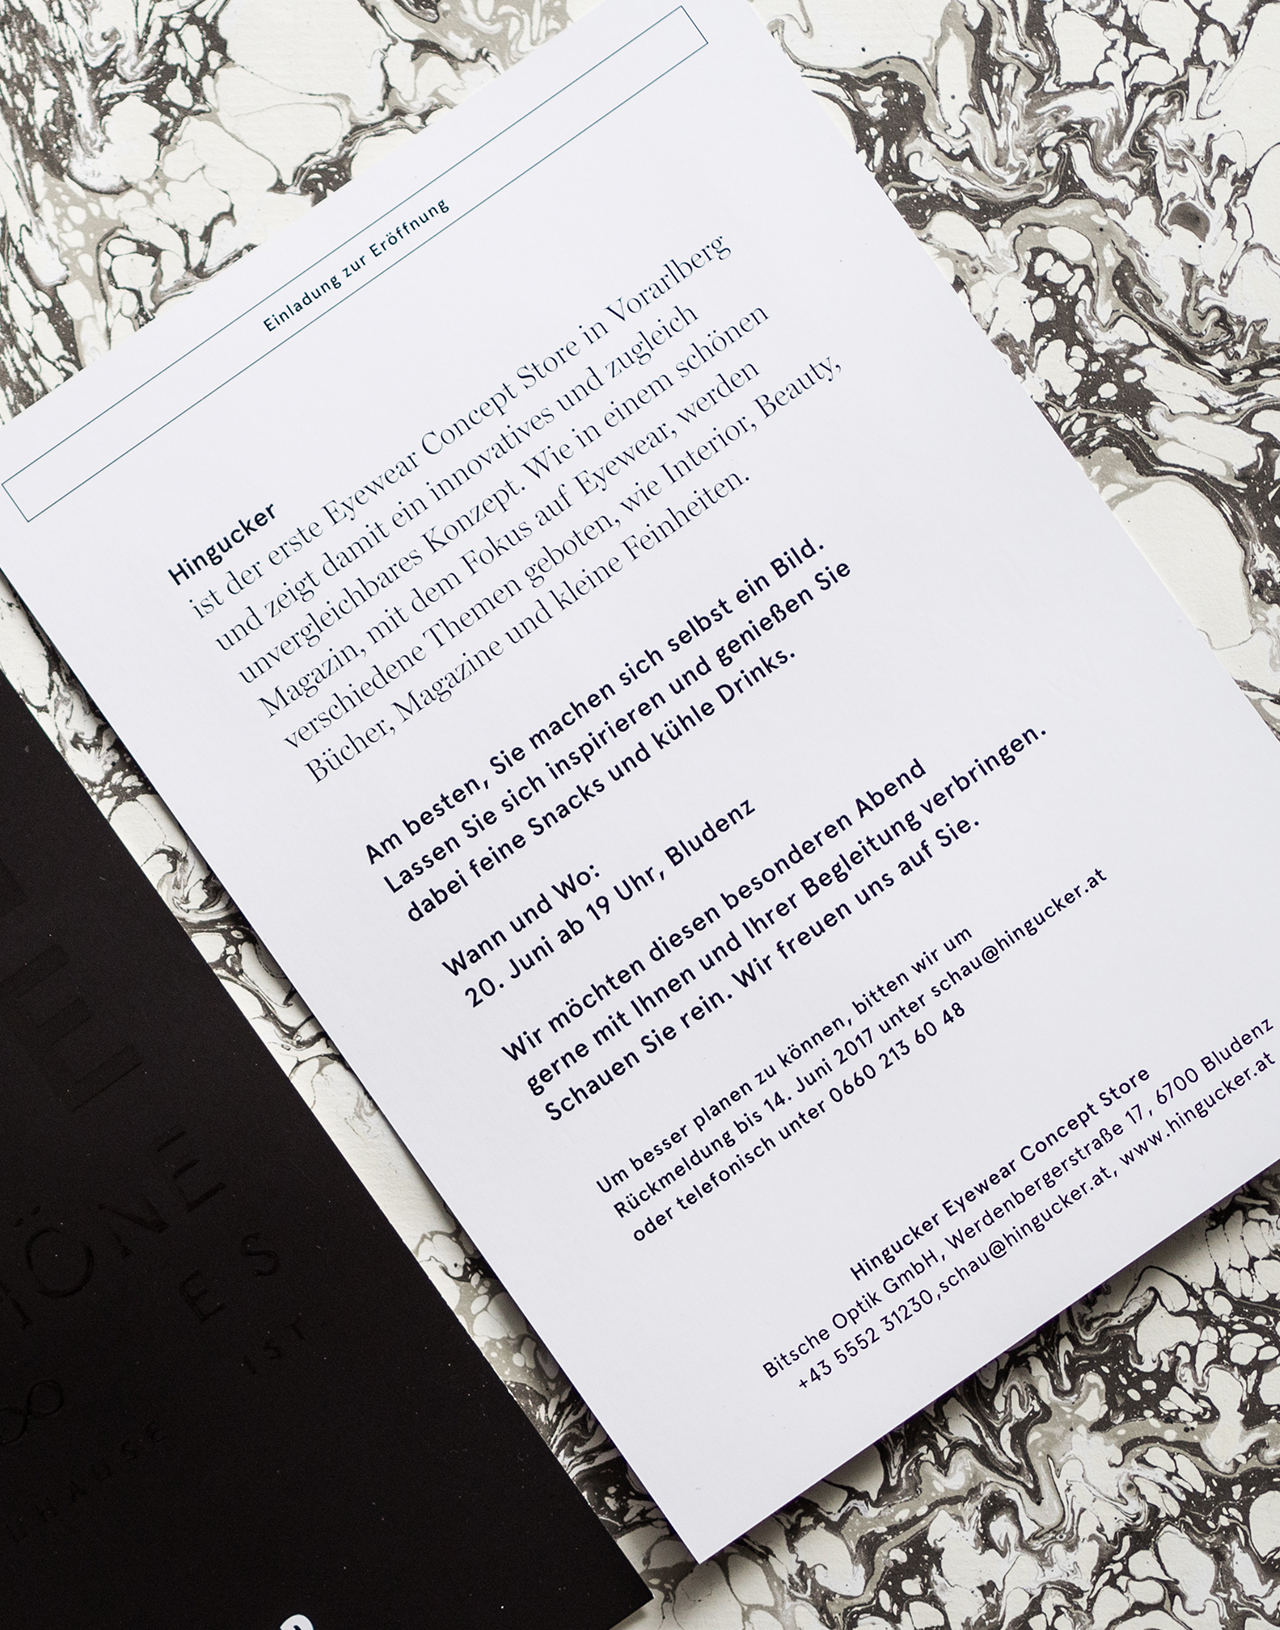 Einladung zur Eröffnung
Hingucker
ist der erste Eyewear Concept Store in Vorarlberg
und zeigt damit ein innovatives und zugleich
unvergleichbares Konzept. Wie in einem schönen
Magazin, mit dem Fokus auf Eyewear, werden
verschiedene Themen geboten, wie Interior, Beauty,
Bücher, Magazine und kleine Feinheiten.
Am besten, Sie machen sich selbst ein Bild.
Lassen Sie sich inspirieren und genießen Sie
dabei feine Snacks und kühle Drinks.
Wann und Wo:
20. Juni ab 19 Uhr, Bludenz
Wir möchten diesen besonderen Abend
gerne mit Ihnen und Ihrer Begleitung verbringen.
Schauen Sie rein. Wir freuen uns auf Sie.
Um besser planen zu können, bitten wir um
Rückmeldung bis 14. Juni 2017 unter schau@hingucker.at
oder telefonisch unter 0660 213 60 48
Hingucker Eyewear Concept Store
Bitsche Optik GmbH, Werdenbergerstraße 17, 6700 Bludenz
+43 5552 31230,schau@hingucker.at, www.hingucker.at
ES
IST